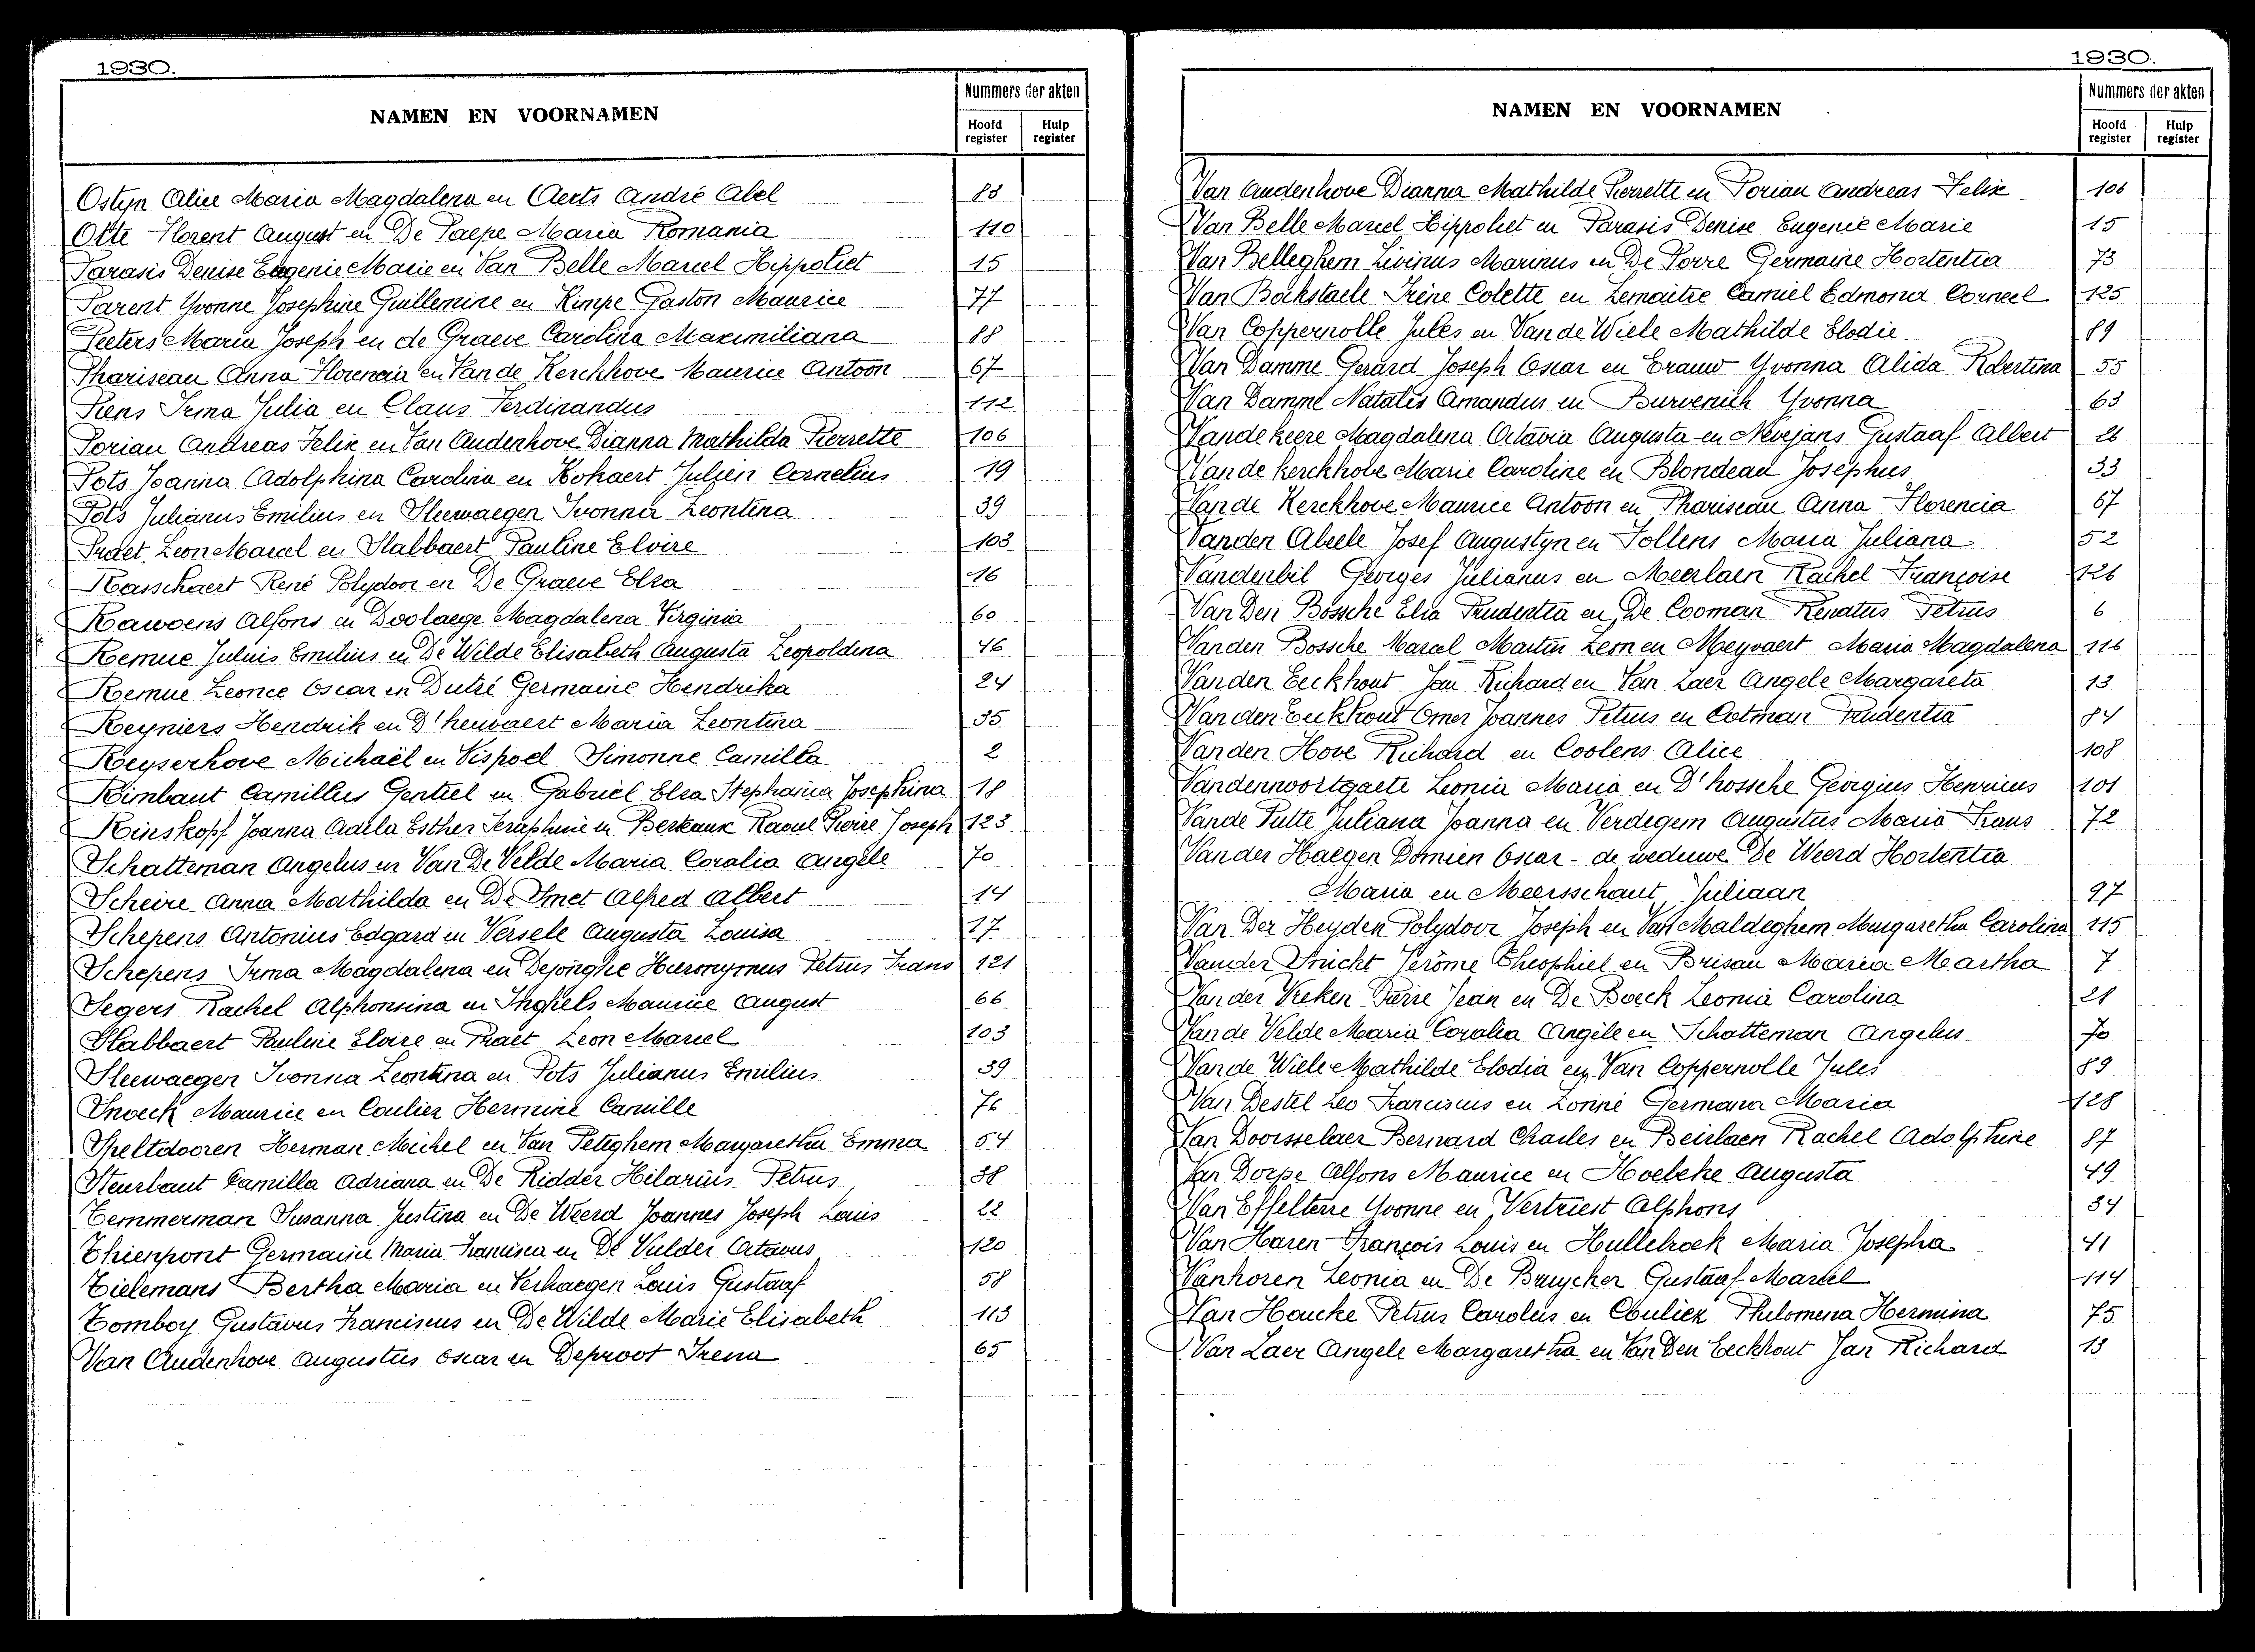 1930.
NAMEN EN VOORNAMEN
Nummers der akten
Hoofd register
Hulp register
Ostyn Alice Maria Magdalena en Aerts André Abel 83
Otte Florent August en De Paepe Maria Romania 110
Parasis Denise Eugenie Marie en Van Belle Marcel Hippoliet 15
Parent Yvonne Josephine Guillemine en Rimpe Gaston Maurice 77
Peeters Maria Joseph en de Graeve Carolina Maximiliana 88
Phariseau Anna Florencia en Van de Kerckhove Maurice Antoon 67
Piens Irma Julia en Claus Ferdinandus 112
Porian Andreas Felix en Van Audenhove Dianna Mathilda Pierrette 106
Pots Joanna Adolphina Carolina en Kokaert Julien Cornelius 19
Pots Julianus Emilius en Sleewaegen Ivonna Leontina 39
Praet Leon Marcel en Slabbaert Pauline Elvire 103
Rasschaert René Polydoor en De Graeve Elza 16
Rawoens Alfons en Doolaege Magdalena Virginia 60
Remue Julius Emilius en De Wilde Elisabeth Augusta Leopoldina 46
Remue Leonce Oscar en Dutré Germaine Hendrika 24
Reyniers Hendrik en D'heuvaert Maria Leontina 35
Reyserhove Michaël en Vispoel Simonne Camilla 2
Rimbaut Camillus Gentiel en Gabriël Elza Stephania Josephina 18
Rinskopf Joanna Adela Esther Seraphine en Berkaux Raoul Pierre Joseph 123
Schatteman Angelus en Van De Velde Maria Coralia Angèle 70
Scheire Anna Mathilda en De Smet Alfred Albert 14
Schepens Antonius Edgard en Versele Augusta Louisa 17
Schepens Irma Magdalena en Dejonghe Hieronymus Petrus Frans 121
Segers Rachel Alphonsina en Inghels Maurice August 66
Slabbaert Pauline Elvire en Praet Leon Marcel 103
Sleewaegen Ivonna Leontina en Pots Julianus Emilius 39
Snoeck Maurice en Coulier Hermine Camille 76
Speltdooren Herman Michel en Van Peteghem Margaretha Emma 54
Steurbaut Camilla Adriana en De Ridder Hilarius Petrus 38
Temmerman Susanna Justina en De Weerd Joannes Joseph Louis 22
Thienpont Germaine Maria Francisca en De Vulder Octavus 120
Tielemans Bertha Maria en Verhaegen Louis Gustaaf 58
Tomboy Gustavus Franciscus en De Wilde Marie Elisabeth 113
Van Audenhove Augustus Oscar en Deproot Irena 65
1930.
NAMEN EN VOORNAMEN
Nummers der akten
Hoofd register
Hulp register
Van Audenhove Dianna Mathilde Pierrette en Porian Andreas Felix 106
Van Belle Marcel Hippoliet en Parasis Denise Eugenie Marie 15
Van Belleghem Livinus Marinus en De Porre Germaine Hortentia 73
Van Bockstaele Irène Colette en Lemaitre Camiel Edmond Corneel 125
Van Coppernolle Jules en Van de Wiele Mathilde Elodie 89
Van Damme Gerard Joseph Oscar en Erauw Yvonna Alida Robertina 55
Van Damme Natalis Amandus en Burvenich Yvonna 63
Vandekeere Magdalena Octavia Augusta en Nevejans Gustaaf Albert 26
Van de kerckhove Marie Caroline en Blondeau Josephus 33
Van de Kerckhove Maurice Antoon en Phariseau Anna Florencia 67
Vanden Abeele Josef Augustyn en Follens Maria Juliana 52
Vanderbil Georges Julianus en Meerlaen Rachel Françoise 126
Van Den Bossche Elia Prudentia en De Cooman Renatus Petrus 6
Vanden Bossche Marcel Martin Leon en Meyvaert Maria Magdalena 116
Vanden Eeckhout Jan Richard en Van Laer Angele Margareta 13
Van den Eeckhout Omer Joannes Petrus en Cotman Prudentia 84
Vanden Hove Richard en Coolens Alice 108
Vandenvoortgaete Leonia Maria en D'hossche Georgius Henricus 101
Vande Putte Juliana Joanna en Verdegem Augustus Maria Frans 72
Vander Haegen Domien Oscar - de weduwe De Weerd Hortentia
Maria en Meersschaut Juliaan 97
Van Der Heyden Polydoor Joseph en Van Maldeghem Margaretha Carolina 115
Vander Stricht Jérôme Theophiel en Brisau Maria Martha 7
Van der Vreken Pierre Jean en De Boeck Leonie Carolina 21
Van de Velde Maria Coralia Angèle en Schatteman Angelus 70
Van de Wiele Mathilde Elodia en Van Coppernolle Jules 89
Van Destel Leo Franciscus en Lonné Germana Maria 128
Van Doorsselaer Bernard Charles en Beirlaen Rachel Adolphine 87
Van Dorpe Alfons Maurice en Hoelcke Augusta 49
Van Effelterre Yvonne en Vertriest Alphons 34
Van Haren François Louis en Hullebroek Maria Josepha 41
Vanhoren Leonia en De Bruycker Gustaaf Marcel 114
Van Houcke Petrus Carolus en Coulier Philomena Hermina 75
Van Laer Angele Margaretha en Van Den Eeckhout Jan Richard 13